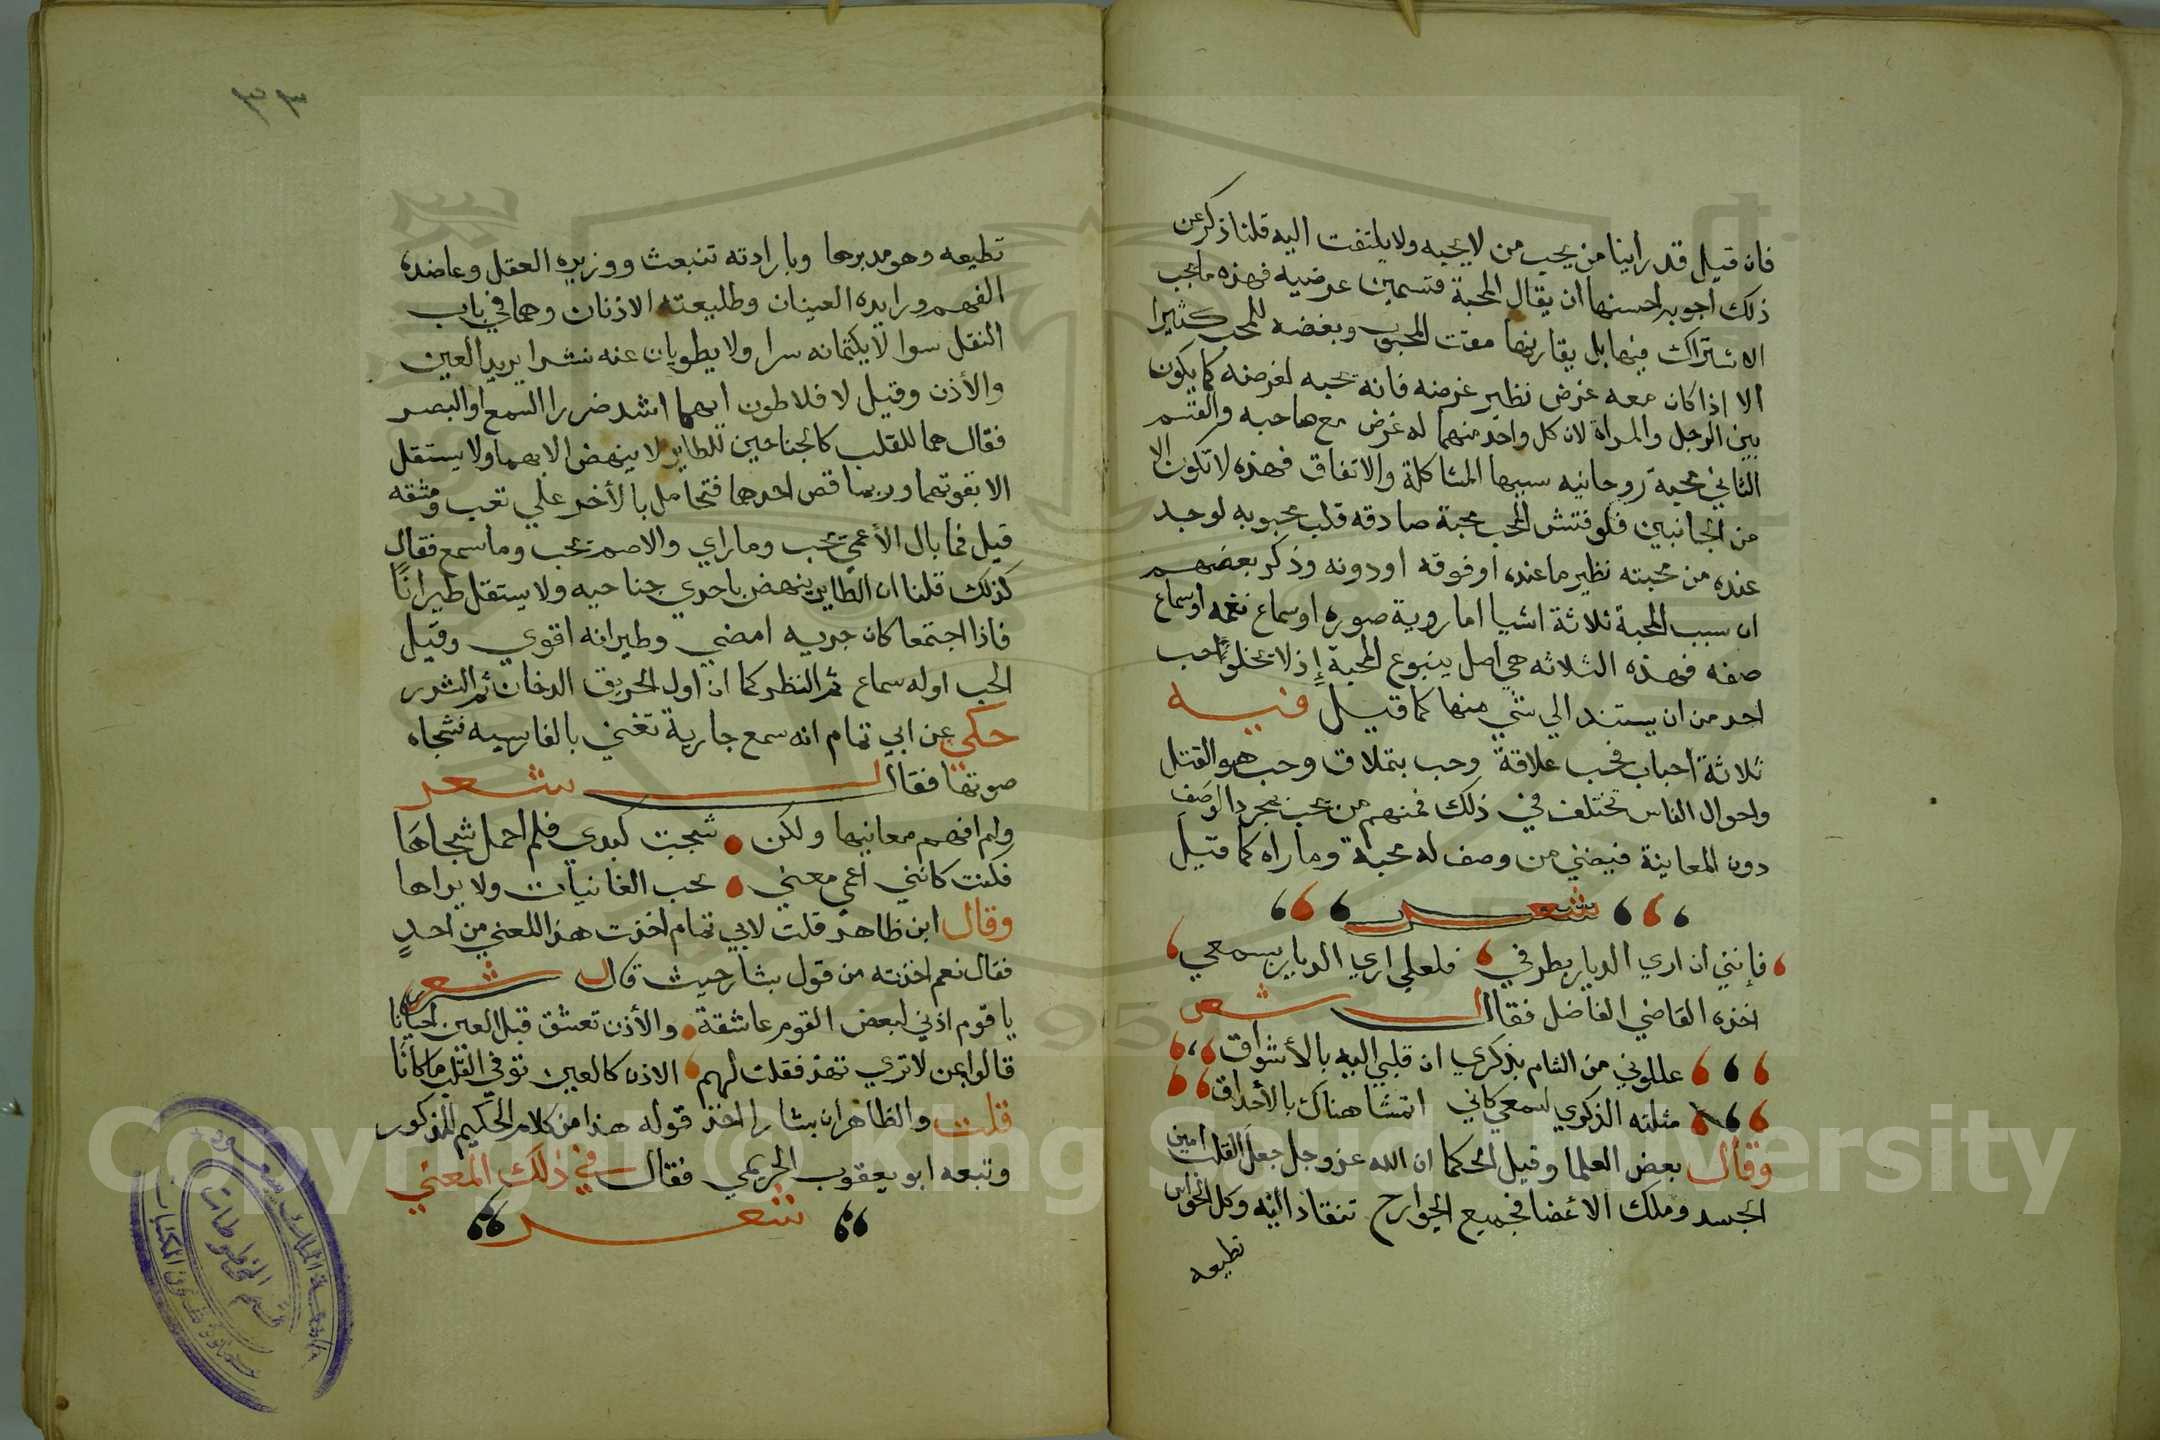 فان قيل قد راينا من يحب من لا يحبه ولا يلتفت اليه قلنا ذكر عن
ذلك اجوبه احسنها ان يقال المحبة قسمين عرضيه فهذه ما يجب
الاشتراك فيها بل يقارنها مقت المحبوب وبغضه للمحب كثيرا
الا اذا كان معه غرض نظير غرضه فانه يحبه لغرضه كما يكون
بين الرجل والمراة لان كل واحد منهما له غرض مع صاحبه والقسم
الثاني محبة روحانيه سببها المشاكلة والاتفاق فهذه لا تكون الا
من الجانبين فلو فتش المحب محبة صادقه قلب محبوبه لوجد
عنده من محبته نظير ما عنده او فوقه او دونه وذكر بعضهم
ان سبب المحبة ثلاثة اشيا اما روية صوره او سماع نغمه او سماع
صفه فهذه الثلاثه هي اصل ينبوع المحبة إذ لا يخلو حب
احد من ان يستند الي شي منها كما قيل فيه
ثلاثة احباب فحب علاقة وحب بتملاق وحب هو القتل
واحوال الناس تختلف في ذلك فمنهم من يحب بمجرد الوصف
دون المعاينة فيضني من وصف له محبة وما راه كما قيل
شعر
فإنني ان اري الديار بطرفي فلعلي اري الديار بسمعي
اخذه القاضي الفاضل فقال شعر
عللوني من الشام بذكري ان قلبي اليه بالأشواق
مثلته الذكري لسمعي كاني اتمشا هناك بالأحداق
وقال بعض العلما وقيل الحكما ان الله عز وجل جعل القلب امين
الجسد وملك الاعضا فجميع الجوارح تنقاد اليه وكل الحواس
تطيعه
٣٣
تطيعه وهو مدبرها وبارادته تنبعث ووزيره العقل وعاضده
الفهم ورايده العينان وطليعته الاذنان وهما في باب
النقل سوا لا يكتمانه سرا ولا يطويان عنه نشرا يريد العين
والأذن وقيل لافلاطون ايهما اشد ضررا السمع او البصر
فقال هما للقلب كالجناحين للطاير لا ينهض الا بهما ولا يستقل
الا بقوتهما وربما قص احدها فتحامل بالأخر علي تعب ومشقه
قيل فما بال الأعمي يحب وما راي والاصم يحب وما سمع فقال
كذلك قلنا ان الطاير ينهض باحدي جناحيه ولا يستقل طيرانًا
فاذا اجتمعا كان جريه امضي وطيرانه اقوي وقيل
الحب اوله سماع ثم النظر كما ان اول الحريق الدخان ثم الشرر
حكي عن ابي تمام انه سمع جارية تغني بالفارسيه فشجاه
صوتها فقال شعر
ولم افهم معانيها ولكن شجت كبدي فلم احمل شجاها
فكنت كانني اعمي معني يحب الغانيات ولا يراها
وقال ابن ظاهر قلت لابي تمام اخذت هذا المعني من احدٍ
فقال نعم اخذته من قول بشار حيث قال شعر
يا قوم اذني لبعض القوم عاشقة والأذن تعشق قبل العين احيانا
قالوا بمن لا تري تهذ فقلت لهم الاذن كالعين توفي القلب ما كانا
قلت والظاهر ان بشارا اخذ قوله هذا من كلام الحكيم المذكور
وتبعه ابو يعقوب الخريمي فقال في ذلك المعني
شعر
جامعة الملك سعود
قسم المخطوطات
Copyright © King Saud University